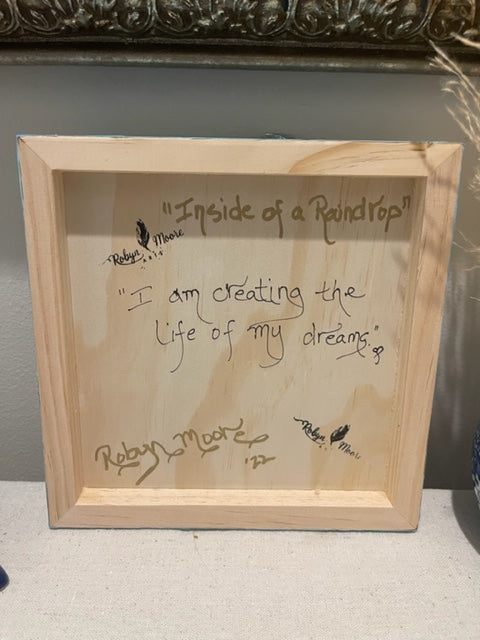 "Inside of a Raindrop"
Robyn Moore
"I am creating the
life of my dreams."
Robyn Moore
'22
Robyn Moore